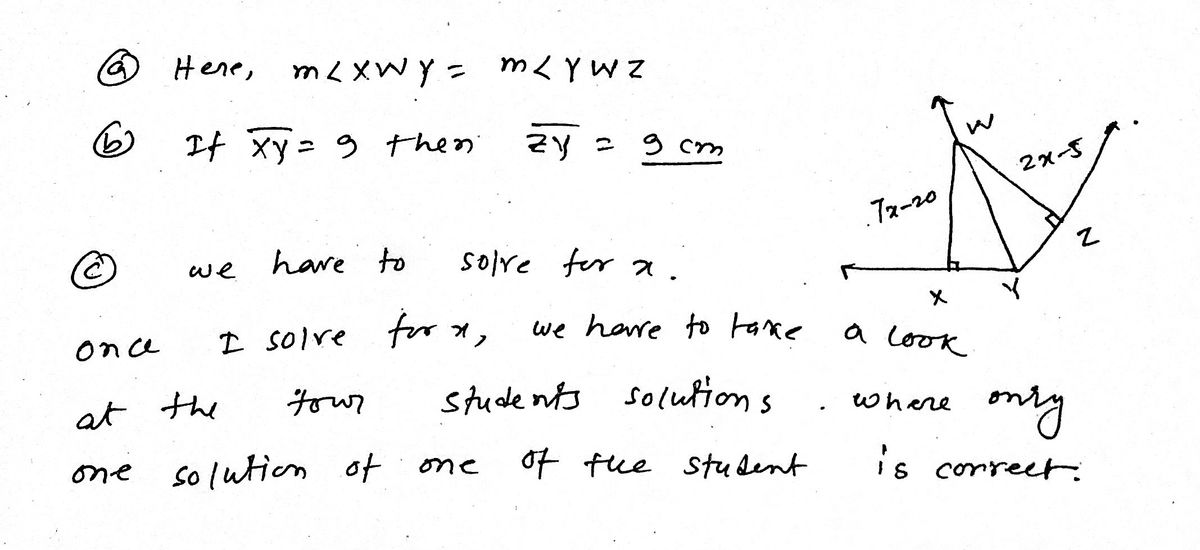 ⓐ Here, m<XWY = m<YWZ
ⓑ If XY = 9 then ZY = 9 cm
W
2x-5
7x-20
Z
X
Y
ⓒ we have to solve for x.
once I solve for x, we have to take a look
at the four students solutions. where only
one solution of one of the student is correct.